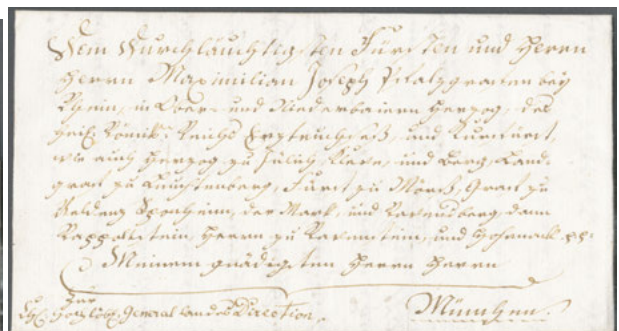 Dem Durchläuchtigsten Fürsten und Herrn
Herrn Maximilian Joseph Pfalzgrafen bey
Rhein, in Ober- und Niederbaiern Herzog, des
Heil. Römisch. Reichs Erztruchseß, und Kurfürst,
wie auch Herzog zu Jülich, Kleve, und Berg, Land-
graf zu Leuchtenberg, Fürst zu Mörs, Graf zu
Veldenz Sponheim, der Mark, und Ravensberg, dann
Rappoltstein, Herrn zu Ravenstein, und Hohenack pp:
Meinem gnädigsten Herrn Herrn
Zur
Hochlöbl. General Landes Direction.
München.